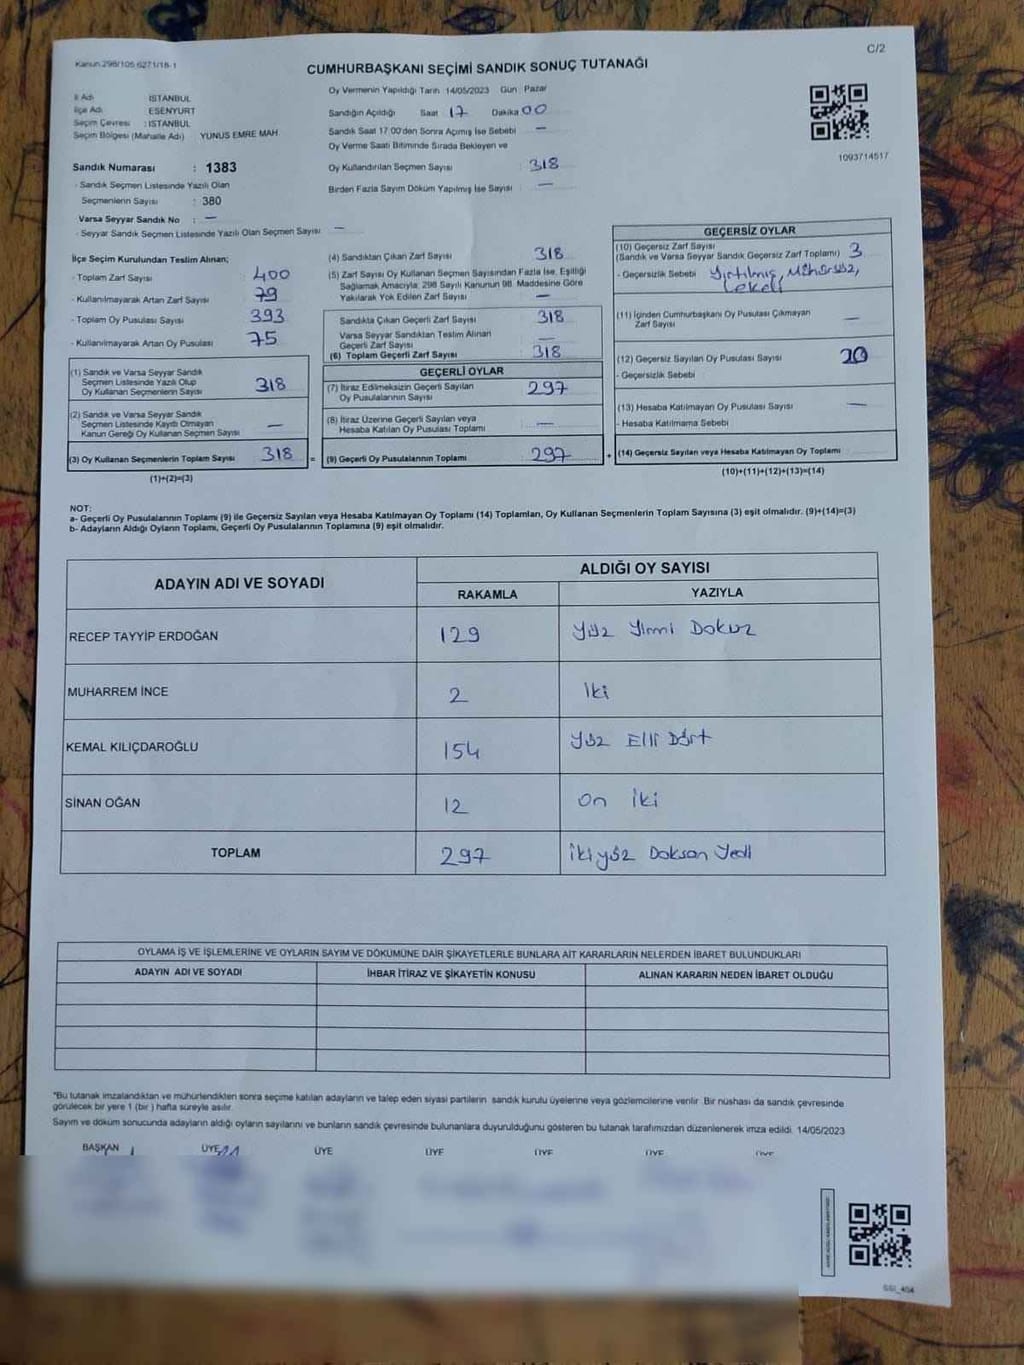 Kanun 298/105 6271/18-1
C/2
CUMHURBAŞKANI SEÇİMİ SANDIK SONUÇ TUTANAĞI
İl Adı : İSTANBUL
İlçe Adı : ESENYURT
Seçim Çevresi : İSTANBUL
Seçim Bölgesi (Mahalle Adı) YUNUS EMRE MAH.
Sandık Numarası : 1383
- Sandık Seçmen Listesinde Yazılı Olan
Seçmenlerin Sayısı : 380
Varsa Seyyar Sandık No : —
- Seyyar Sandık Seçmen Listesinde Yazılı Olan Seçmen Sayısı : —
Oy Vermenin Yapıldığı Tarih 14/05/2023 Gün Pazar
Sandığın Açıldığı Saat 17 Dakika 00
Sandık Saat 17.00'den Sonra Açılmış İse Sebebi : —
Oy Verme Saati Bitiminde Sırada Bekleyen ve
Oy Kullandırılan Seçmen Sayısı : 318
Birden Fazla Sayım Döküm Yapılmış İse Sayısı : —
1093714517
İlçe Seçim Kurulundan Teslim Alınan;
- Toplam Zarf Sayısı : 400
- Kullanılmayarak Artan Zarf Sayısı : 79
- Toplam Oy Pusulası Sayısı : 393
- Kullanılmayarak Artan Oy Pusulası : 75
(1) Sandık ve Varsa Seyyar Sandık
Seçmen Listesinde Yazılı Olup
Oy Kullanan Seçmenlerin Sayısı 318
(2) Sandık ve Varsa Seyyar Sandık
Seçmen Listesinde Kayıtlı Olmayan
Kanun Gereği Oy Kullanan Seçmen Sayısı —
(3) Oy Kullanan Seçmenlerin Toplam Sayısı 318 =
(1)+(2)=(3)
(4) Sandıktan Çıkan Zarf Sayısı : 318
(5) Zarf Sayısı Oy Kullanan Seçmen Sayısından Fazla İse, Eşitliği
Sağlamak Amacıyla; 298 Sayılı Kanunun 98. Maddesine Göre
Yakılarak Yok Edilen Zarf Sayısı : —
Sandıkta Çıkan Geçerli Zarf Sayısı : 318
Varsa Seyyar Sandıktan Teslim Alınan
Geçerli Zarf Sayısı : —
(6) Toplam Geçerli Zarf Sayısı : 318
GEÇERLİ OYLAR
(7) İtiraz Edilmeksizin Geçerli Sayılan
Oy Pusulalarının Sayısı : 297
(8) İtiraz Üzerine Geçerli Sayılan veya
Hesaba Katılan Oy Pusulası Toplamı : —
(9) Geçerli Oy Pusulalarının Toplamı : 297 +
GEÇERSİZ OYLAR
(10) Geçersiz Zarf Sayısı
(Sandık ve Varsa Seyyar Sandık Geçersiz Zarf Toplamı) 3
- Geçersizlik Sebebi : Yırtılmış, Mühürsüz,
Lekeli
(11) İçinden Cumhurbaşkanı Oy Pusulası Çıkmayan
Zarf Sayısı : —
(12) Geçersiz Sayılan Oy Pusulası Sayısı :
- Geçersizlik Sebebi
(13) Hesaba Katılmayan Oy Pusulası Sayısı : —
- Hesaba Katılmama Sebebi
(14) Geçersiz Sayılan veya Hesaba Katılmayan Oy Toplamı
(10)+(11)+(12)+(13)=(14)
NOT:
a- Geçerli Oy Pusulalarının Toplamı (9) ile Geçersiz Sayılan veya Hesaba Katılmayan Oy Toplamı (14) Toplamları, Oy Kullanan Seçmenlerin Toplam Sayısına (3) eşit olmalıdır. (9)+(14)=(3)
b- Adayların Aldığı Oyların Toplamı, Geçerli Oy Pusulalarının Toplamına (9) eşit olmalıdır.
ADAYIN ADI VE SOYADI
ALDIĞI OY SAYISI
RAKAMLA YAZIYLA
RECEP TAYYİP ERDOĞAN 129 Yüz Yirmi Dokuz
MUHARREM İNCE 2 İki
KEMAL KILIÇDAROĞLU 154 Yüz Elli Dört
SİNAN OĞAN 12 On iki
TOPLAM 297 İkiyüz Doksan Yedi
OYLAMA İŞ VE İŞLEMLERİNE VE OYLARIN SAYIM VE DÖKÜMÜNE DAİR ŞİKAYETLERLE BUNLARA AİT KARARLARIN NELERDEN İBARET BULUNDUKLARI
ADAYIN ADI VE SOYADI İHBAR İTİRAZ VE ŞİKAYETİN KONUSU ALINAN KARARIN NEDEN İBARET OLDUĞU
*Bu tutanak imzalandıktan ve mühürlendikten sonra seçime katılan adayların ve talep eden siyasi partilerin sandık kurulu üyelerine veya gözlemcilerine verilir. Bir nüshası da sandık çevresinde
görülecek bir yere 1 (bir) hafta süreyle asılır.
Sayım ve döküm sonucunda adayların aldığı oyların sayılarını ve bunların sandık çevresinde bulunanlara duyurulduğunu gösteren bu tutanak tarafımızdan düzenlenerek imza edildi. 14/05/2023
BAŞKAN ÜYE ÜYE ÜYE ÜYE ÜYE ÜYE
SSI_404